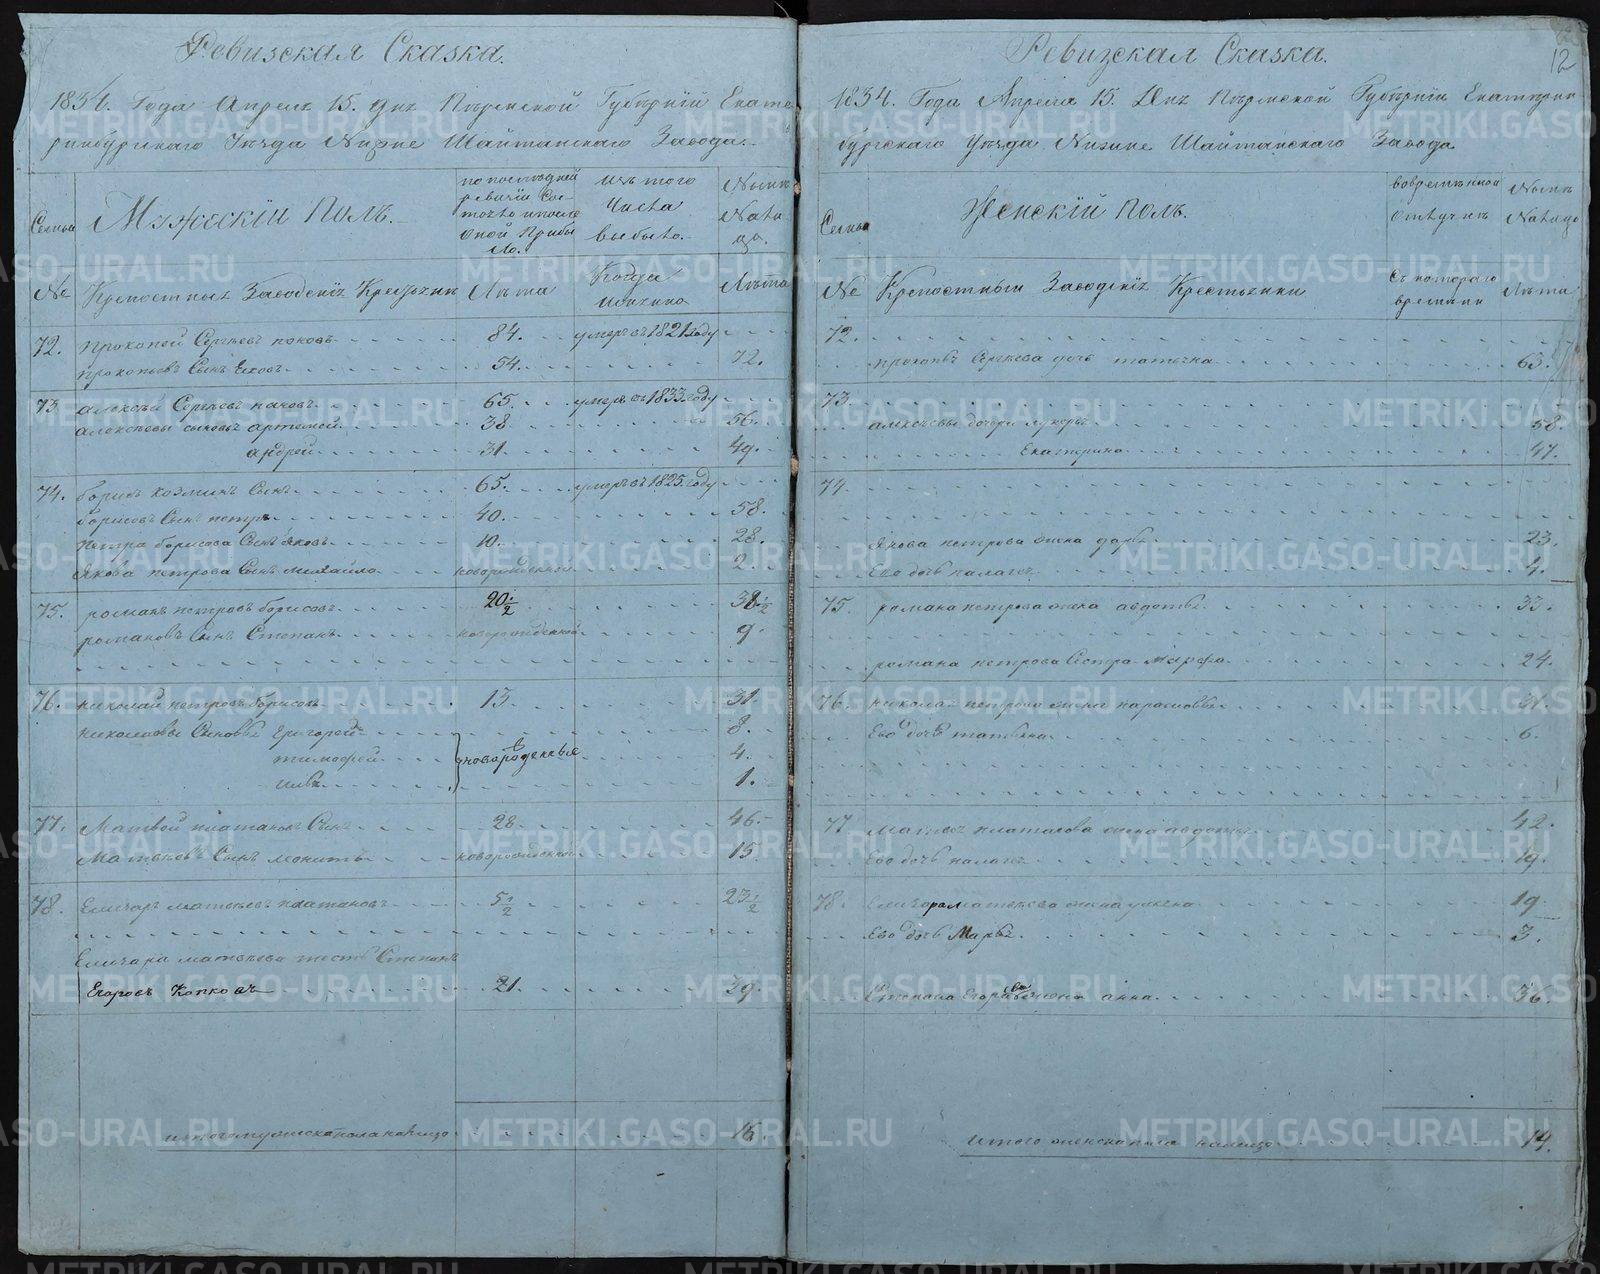 Ревизская Сказка.
1834. Года Апреля 15. дня Пермской Губѣрнiй Екате
ринбургскаго Уезда Нижне Шайтанскаго Завода.
Семьи
Мужескiй Полъ.
по последней ревизiи Сос тояло и после оной Прибы ло.
Изъ того Числа выбыло.
Ныне Налицо.
№
Крепостныхъ Заводскiхъ Крестьянъ
Лѣта
Когда именно
Лѣта
72. Прокопей Сергѣевъ пановъ 84. умеръ въ 1821 году
прокопьевъ Сынъ 54. 72.
73. алексѣй Сергѣевъ пановъ 65. умеръ въ 1833 году
алексѣевы сыновья артемей 38 56.
андрей 31. 49.
74. борисъ козминъ Сынъ 65. умеръ въ 1825 году
борисовъ Сынъ петръ 40. 58.
петра борисова Сынъ Яковъ 10. 28.
Якова петрова Сынъ михайло новорожденной 2.
75. романъ петровъ борисовъ 20 1/2 38 1/2
романовъ Сынъ Степанъ новорожденной 9.
76. николай петровъ борисовъ 13. 31
николаевы Сыновья Григорей 8.
тимофей новорожденные 4.
1.
77. Матвей платановъ Сынъ 28. 46.
Матвѣевъ Сынъ леонтiй новорожденной 15
78. Елизаръ матвѣевъ платановъ 5 1/2 23 1/2
Елизара матвѣева тесть Степанъ
Егоровъ Копковъ 21. 39.
итого мужеска пола налицо 16.
12
Ревизская Сказка.
1834. Года Апреля 15. Дня Пермской Губѣрнiи Екатерин
бургскаго Уезда Нижне Шайтанскаго Завода
Семьи
Женскiй Полъ.
вовременной отлучкѣ
Ныне Налицо
№
Крепостныи Заводскiя Крестьянки
Съ котораго времяни
Лѣта
72.
прокопья Сергѣева дочь татьяна 63.
73.
алексѣевы дочери лукерья 58.
Екатерина 47.
74.
Якова петрова жена дарья 23.
Ево дочь палагея 4.
75. романа петрова жена авдотья 33.
романа петрова Сестра Марфа 24.
76. николая петрова жена парасковья 31.
Ево дочь татьяна 6.
77 Матвея платанова жена авдотья 42.
Ево дочь палагея 19.
78. Елизара матвѣева жена 19
Ево дочь Марья 3.
Степана Егорова жена анна 36.
итого женска пола налицо 14.
METRIKI.GASO-URAL.RU